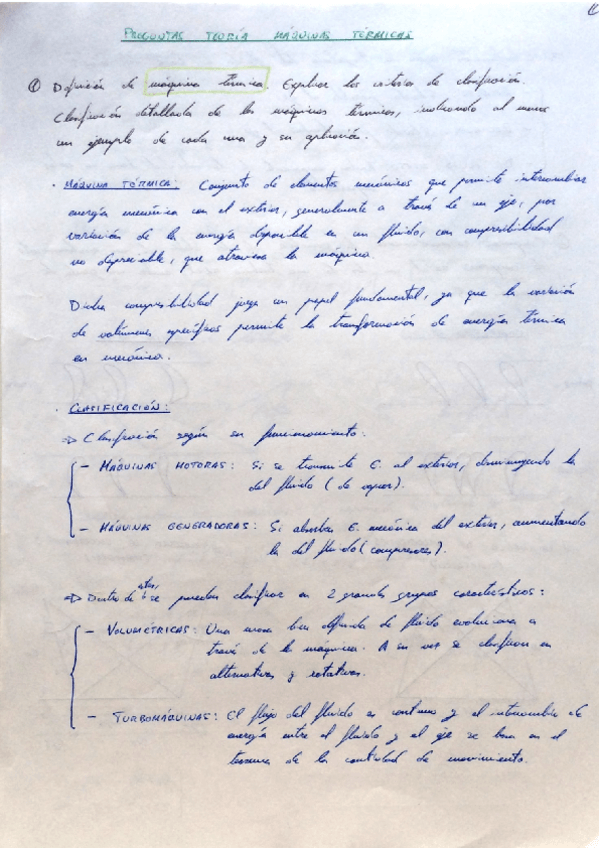 PREGUNTAS TEORÍA MÁQUINAS TÉRMICAS
① Definición de máquina térmica. Explicar los criterios de clasificación.
Clasificación detallada de las máquinas térmicas, indicando al menos
un ejemplo de cada una y su aplicación.
· MÁQUINA TÉRMICA: Conjunto de elementos mecánicos que permite intercambiar
energía mecánica con el exterior, generalmente a través de un eje, por
variación de la energía disponible en un fluido, con compresibilidad
no depreciable, que atraviesa la máquina.
Dicha compresibilidad juega un papel fundamental, ya que la variación
de volúmenes específicos permite la transformación de energía térmica
en mecánica.
· CLASIFICACIÓN:
⇒ Clasificación según su funcionamiento:
- MÁQUINAS MOTORAS: Si se transmite E. al exterior, disminuyendo la
del fluido (de vapor).
- MÁQUINAS GENERADORAS: Si absorbe E. mecánica del exterior, aumentando
la del fluido (compresores).
⇒ Dentro de estas, se pueden clasificar en 2 grandes grupos característicos:
- VOLUMÉTRICAS: Una masa bien definida de fluido evoluciona a
través de la máquina. A su vez se clasifican en
alternativas y rotativas.
- TURBOMÁQUINAS: El flujo del fluido es continuo y el intercambio de
energía entre el fluido y el eje se basa en el
teorema de la cantidad de movimiento.